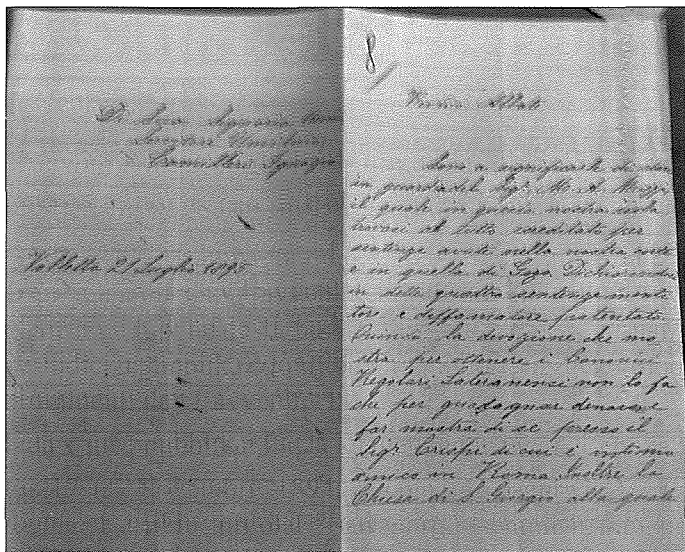 Di Sua Signoria
Servitore Umilissi
Ignazio
Valletta 21 Luglio 1895
8
Abate
Sono a significarle di stare
in guardia del Sigr. M. A.
il quale in questa nostra isola
trovasi al tutto screditato per
sentenze avute nella nostra corte
e in quella di Gozo
in delle quattro sentenze menti
tore e diffamatore patentato
Quindi la devozione che mo
stra per ottenere i Canonici
Regolari Lateranensi non lo fa
che per guadagnar denaro e
far mostra di se presso il
Sigr. Crispi di cui è intimo
amico in Roma Inoltre la
Chiesa di S. Giorgio alla quale